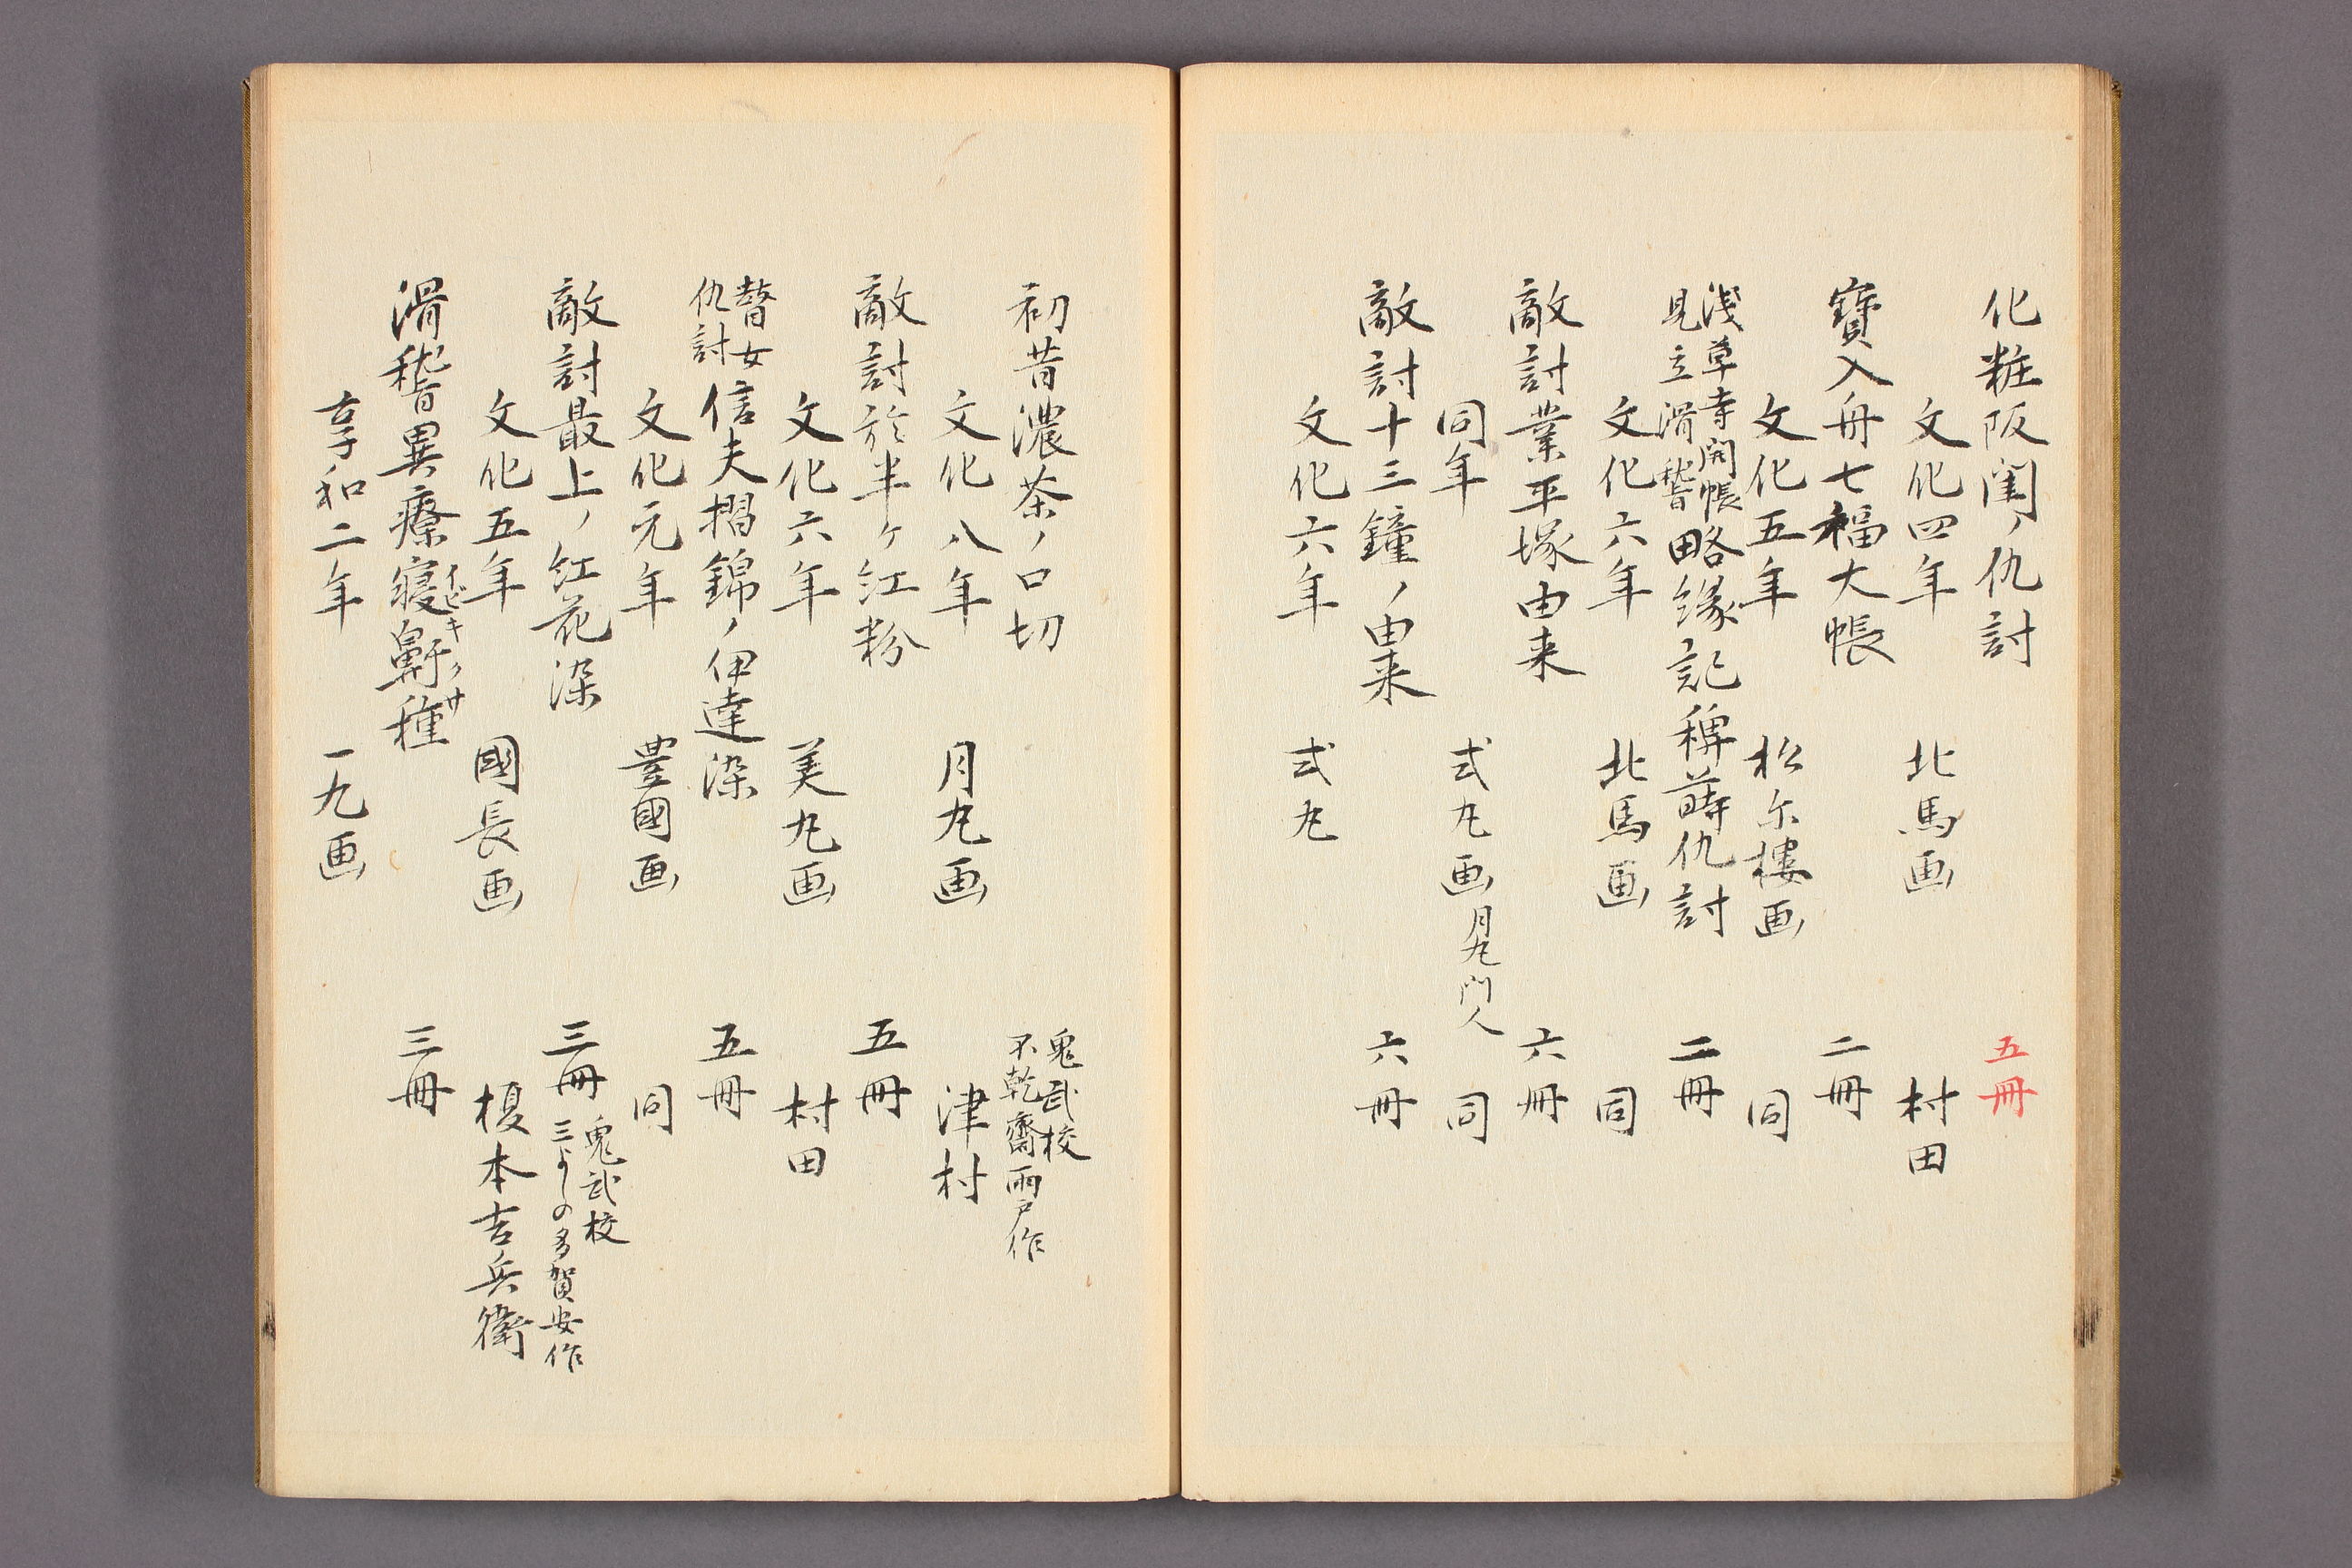 化粧阪閨ノ仇討　五冊
文化四年　北馬画　村田
寳入舟七福大帳　二冊
文化五年　松尓樓画　同
浅草寺開帳
見立滑稽
略縁記稗蒔仇討　二冊
文化六年　北馬画　同
敵討業平塚由来　六冊
同年　式九画　月九門人　同
敵討十三鐘ノ由来　六冊
文化六年　式九
初昔濃茶ノ口切　鬼武校
不乾齋雨戸作
文化八年　月九画　津村
敵討於半ヶ紅粉　五冊
文化六年　美九画　村田
瞽女
仇討
信夫摺錦ノ伊達染　五冊
文化元年　豊國画　同
敵討最上ノ紅花染　三冊　鬼武校
三よしの多賀安作
文化五年　國長画　榎本吉兵衛
滑稽異療寝鼾種　三冊
イビキノサ
享和二年　一九画